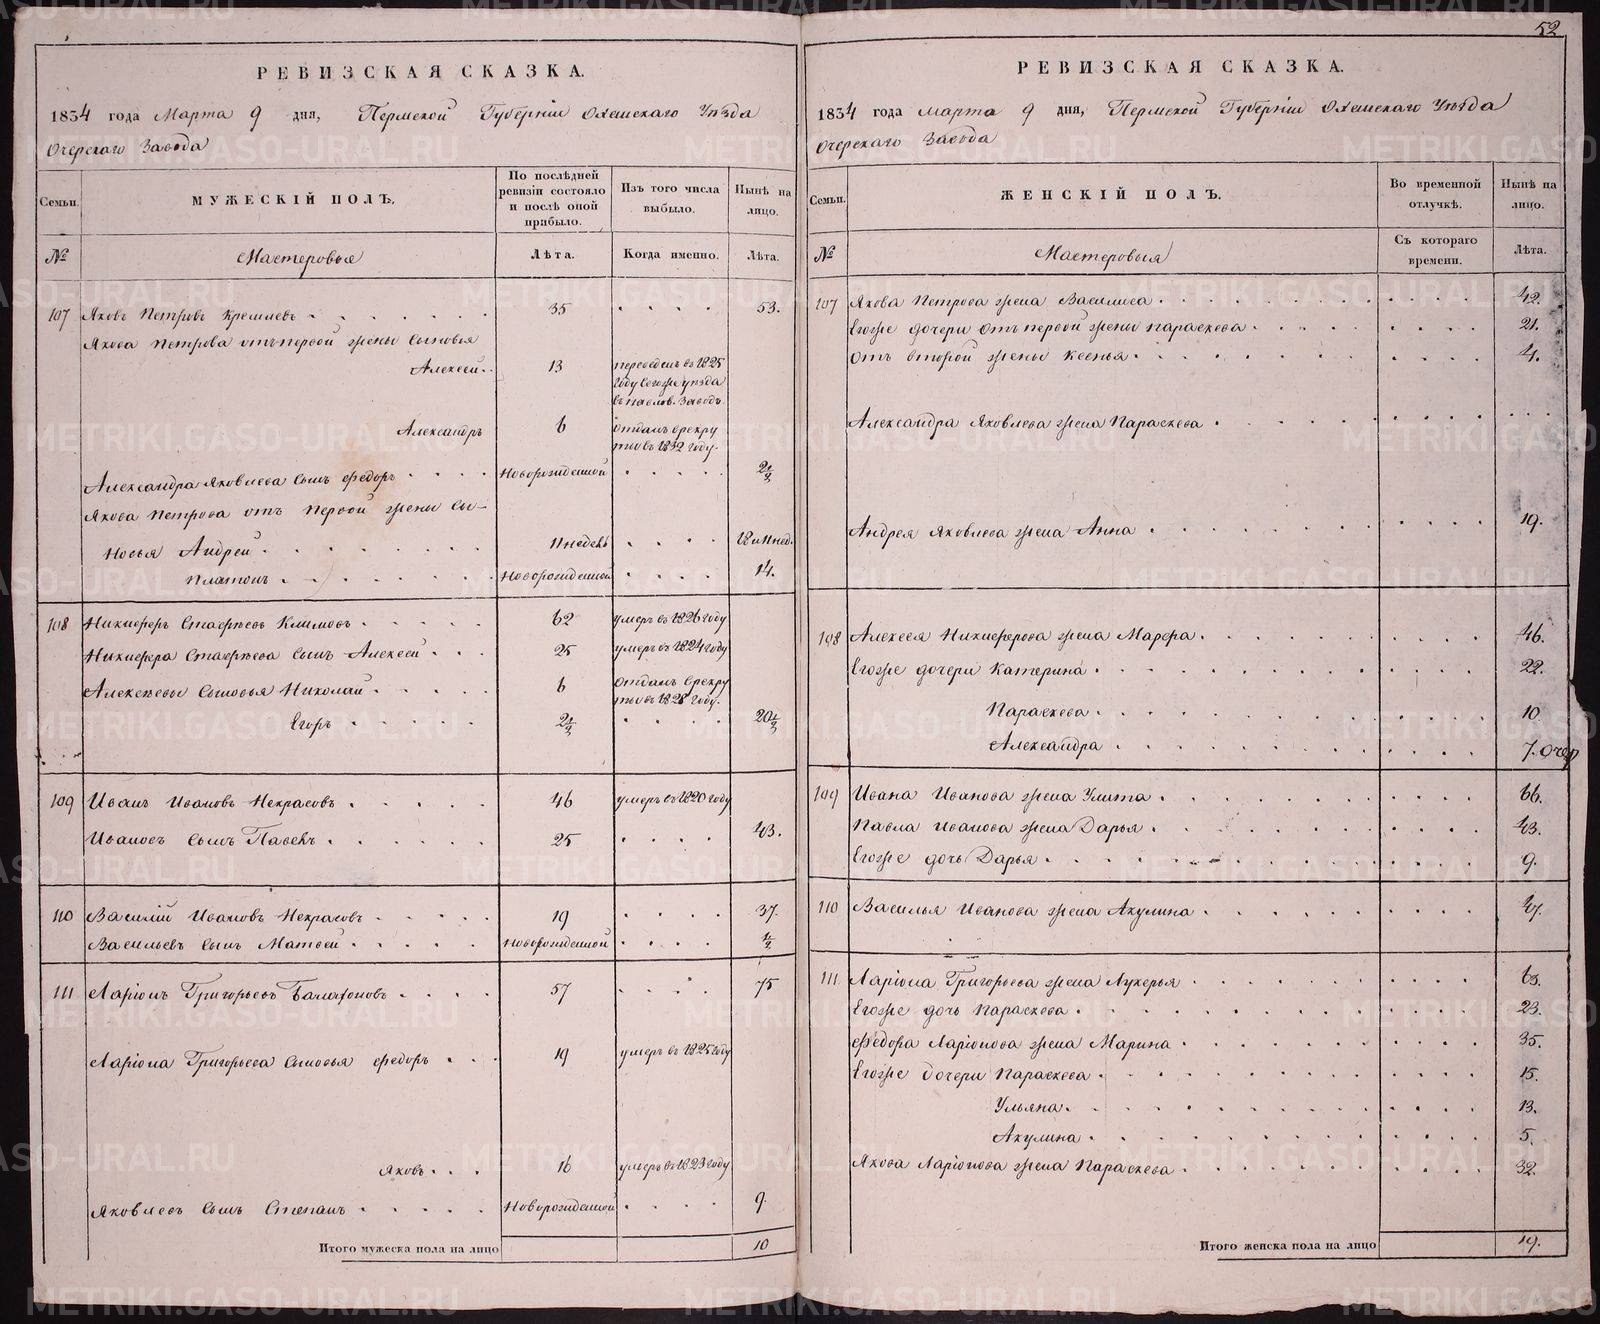 52
РЕВИЗСКАЯ СКАЗКА.
1834 года Марта 9 дня, Пермской Губерніи Оханскаго Уѣзда
Очерскаго Завода
Семьи.
МУЖЕСКІЙ ПОЛЪ.
По послѣдней
ревизіи состояло
и послѣ оной
прибыло.
Изъ того числа
выбыло.
Нынѣ на
лицо.
№
Мастеровыя
Лѣта.
Когда именно.
Лѣта.
107 Яковъ Петровъ 35 53.
Якова Петрова отъ первой жены сыновья
Алексей 13 переведенъ въ 1825
году
Завод
Александръ 6 отданъ в рекру
ты въ 1832 году.
Александра Яковлева сынъ Федоръ Новорожденной 2½
Якова Петрова отъ первой жены сы-
новья Андрей недель
Платонъ Новорожденной 14.
108 Никифоръ Климовъ 62 умеръ въ 1826 году
Никифора сынъ Алексей 25 умеръ въ 1824 году
Алексеевы сыновья Николай 6 отданъ в рекру
ты въ 1828 году.
Егоръ 2½ 20½
109 Иванъ Ивановъ Некрасовъ 46 умеръ въ 1820 году
Ивановъ сынъ Павелъ 25 43.
110 Василій Ивановъ Некрасовъ 19 37.
Васильевъ сынъ Матвей Новорожденной ½
111 Ларіонъ Григорьевъ 57 75
Ларіона Григорьева сыновья Федоръ 19 умеръ въ 1825 году
Яковъ 16 умеръ въ 1823 году
Яковлевъ сынъ Степанъ Новорожденной 9.
Итого мужеска пола на лицо 10
РЕВИЗСКАЯ СКАЗКА.
1834 года марта 9 дня, Пермской Губерніи Оханскаго Уѣзда
Очерскаго Завода
Семьи.
ЖЕНСКІЙ ПОЛЪ.
Во временной
отлучкѣ.
Нынѣ на
лицо.
№
Мастеровыя
Съ котораго
времени.
Лѣта.
107 Якова Петрова жена Василиса 42.
Егоже дочери отъ первой жены Параскева 21.
отъ второй жены Ксенья 4.
Александра Яковлева жена Параскева
Андрея Яковлева жена Анна 19.
108 Алексея Никифорова жена Марфа 46.
Егоже дочери Катерина 22.
Параскева 10
Александра 7.
109 Ивана Иванова жена Улита 66.
Павла Иванова жена Дарья 43.
Егоже дочь Дарья 9.
110 Василья Иванова жена Акулина 47.
111 Ларіона Григорьева жена Лукерья 63.
Егоже дочь Параскева 23.
Федора Ларіонова жена Марина 35.
Егоже дочери Параскева 15.
Ульяна 13.
Акулина 5.
Якова Ларіонова жена Параскева 32.
Итого женска пола на лицо 19.
METRIKI.GASO-URAL.RU